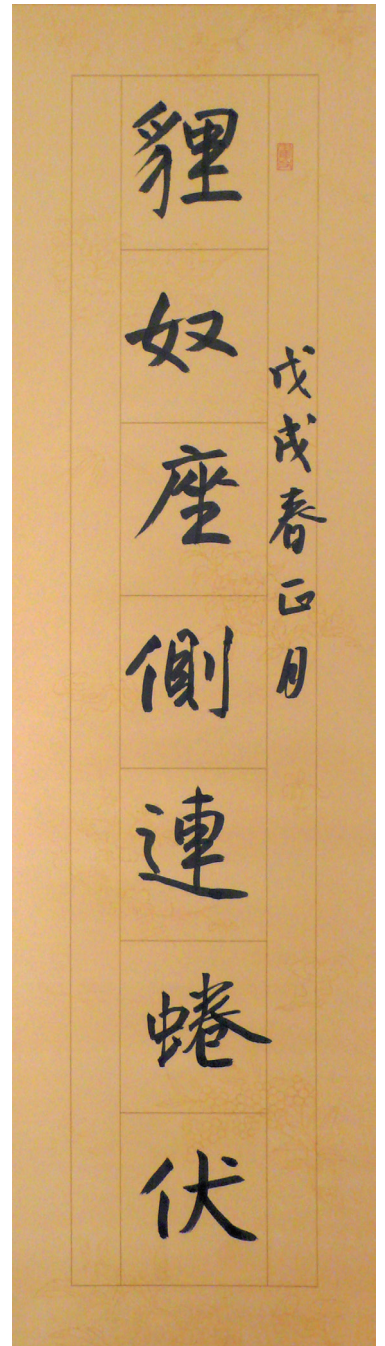 戊戌春正月
貍奴座側連蜷伏